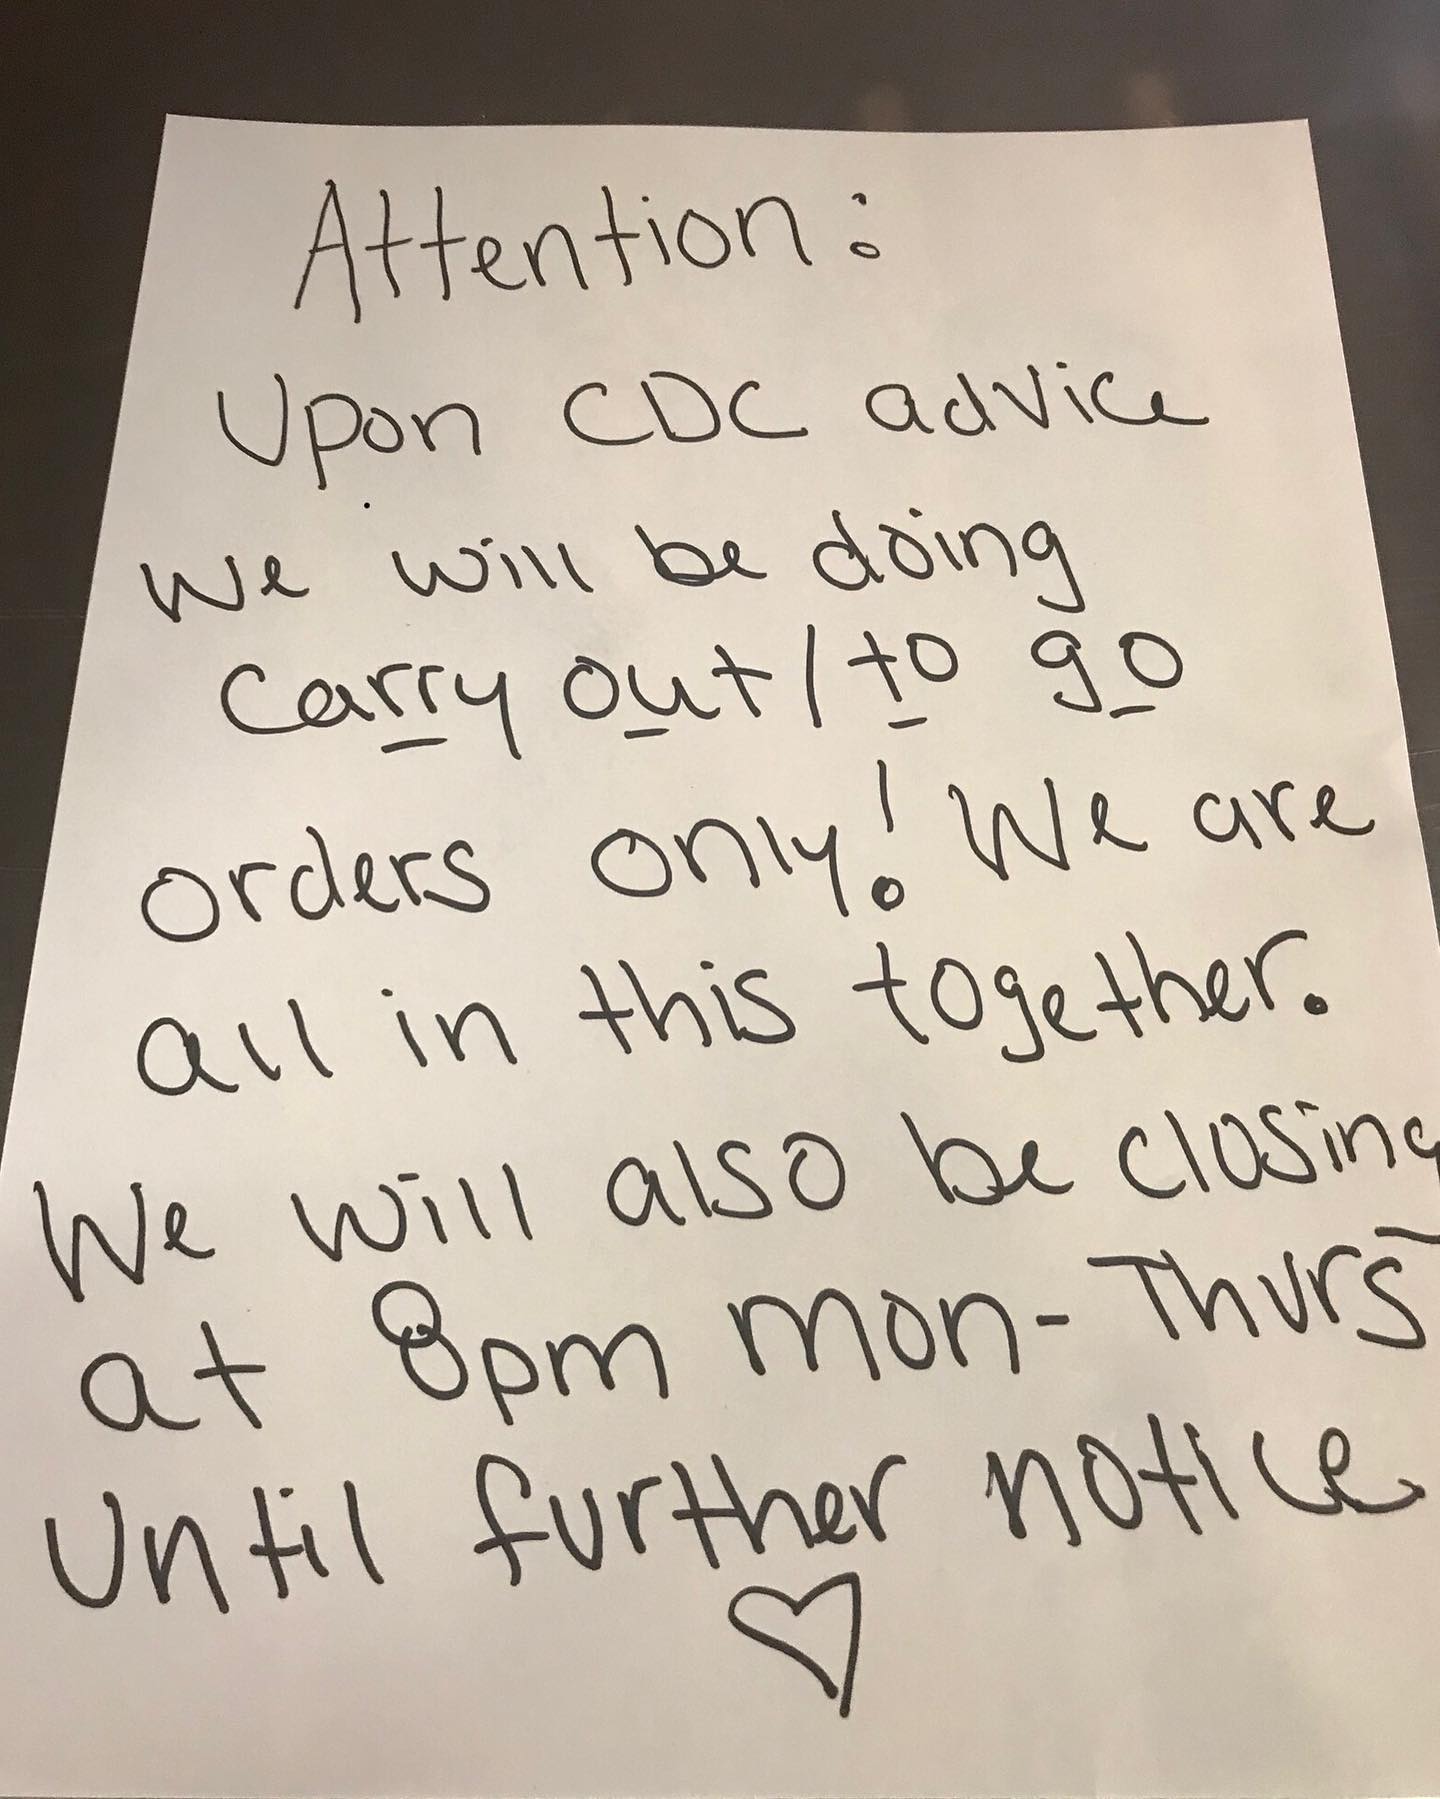 Attention:
Upon CDC advice
we will be doing
carry out/to go
orders only! We are
all in this together.
We will also be closing
at 8pm mon-Thurs
until further notice